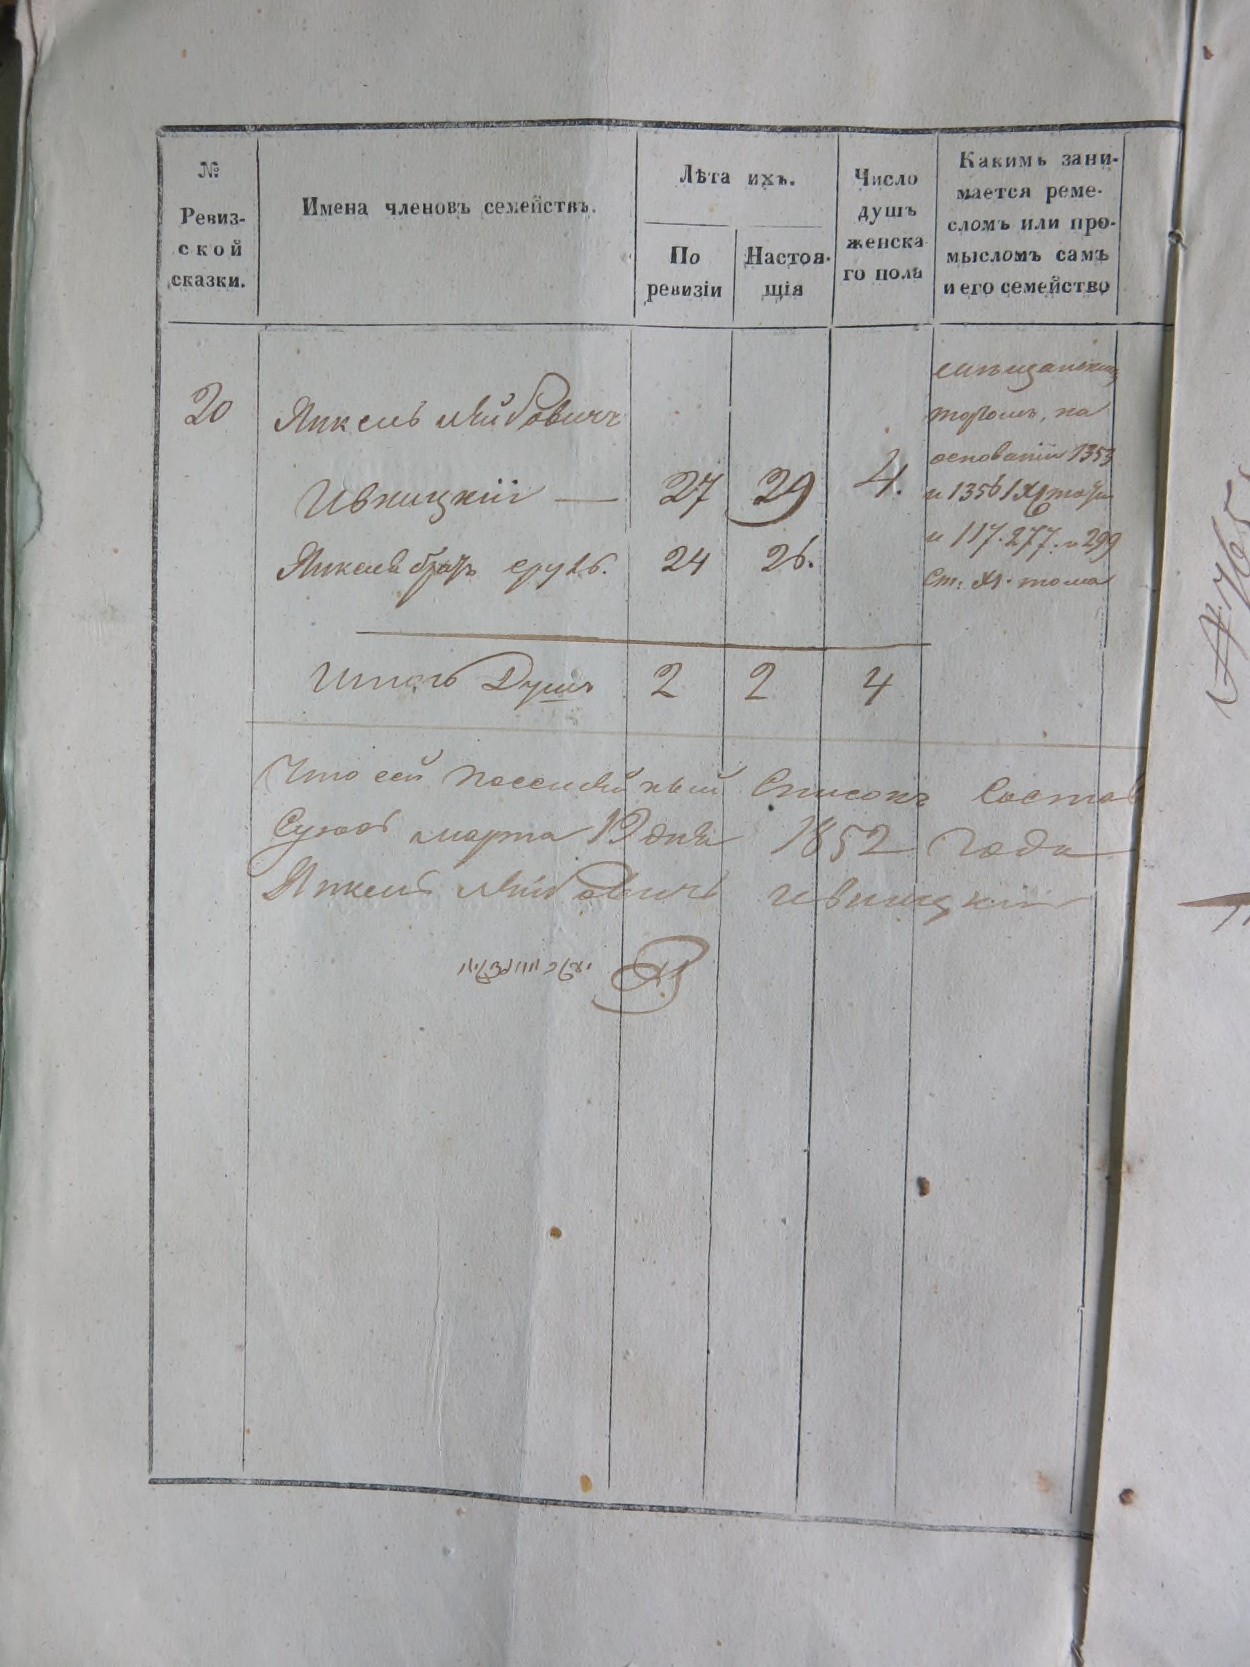 №
Ревиз-
ской
сказки.
Имена членовъ семействъ.
Лѣта ихъ.
По
ревизіи
Настоя-
щія
Число
душъ
женска
го пола
Какимъ зани-
мается реме-
сломъ или про-
мысломъ самъ
и его семейство
20
Янкель Лейбовичъ
Ивницкій — 27 29 4.
Янкеля братъ 24 26.
торгомъ, на
основаніи 1353
и 1356
и 117. 277. и 299
Ст: XI. тома
Итого Душъ 2 2 4
Что сей посемейный Списокъ Состав
марта 19 дня 1852 года
Янкель Лейбовичъ Ивницкій